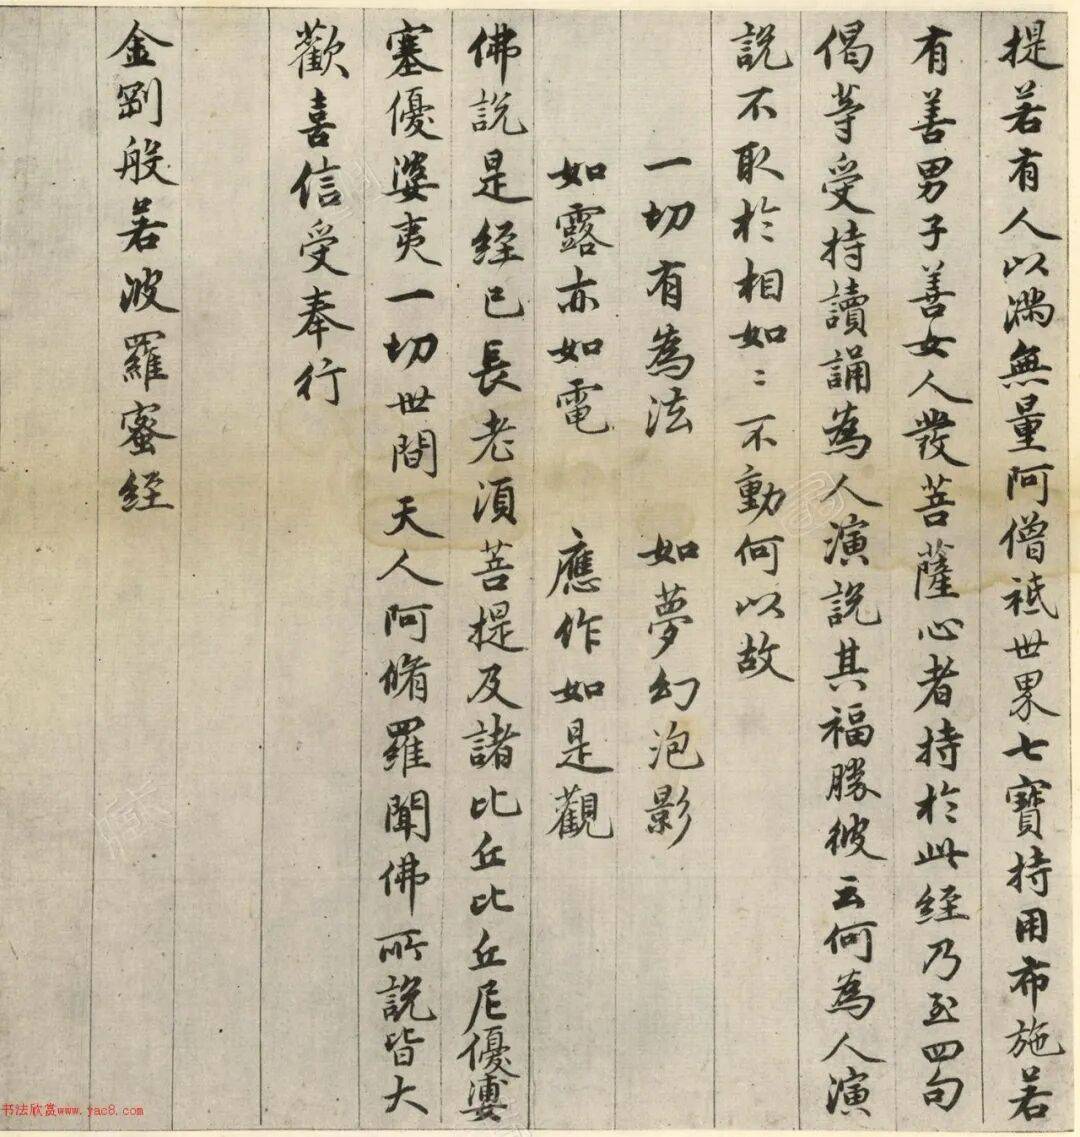 提若有人以滿無量阿僧祇世界七寶持用布施若
有善男子善女人發菩薩心者持於此経乃至四句
偈等受持讀誦為人演說其福勝彼云何為人演
說不取於相如〻不動何以故
一切有為法　如夢幻泡影
如露亦如電　應作如是觀
佛說是経已長老須菩提及諸比丘比丘尼優婆
塞優婆夷一切世間天人阿脩羅聞佛所說皆大
歡喜信受奉行
金剛般若波羅蜜経
书法欣赏www.yac8.com